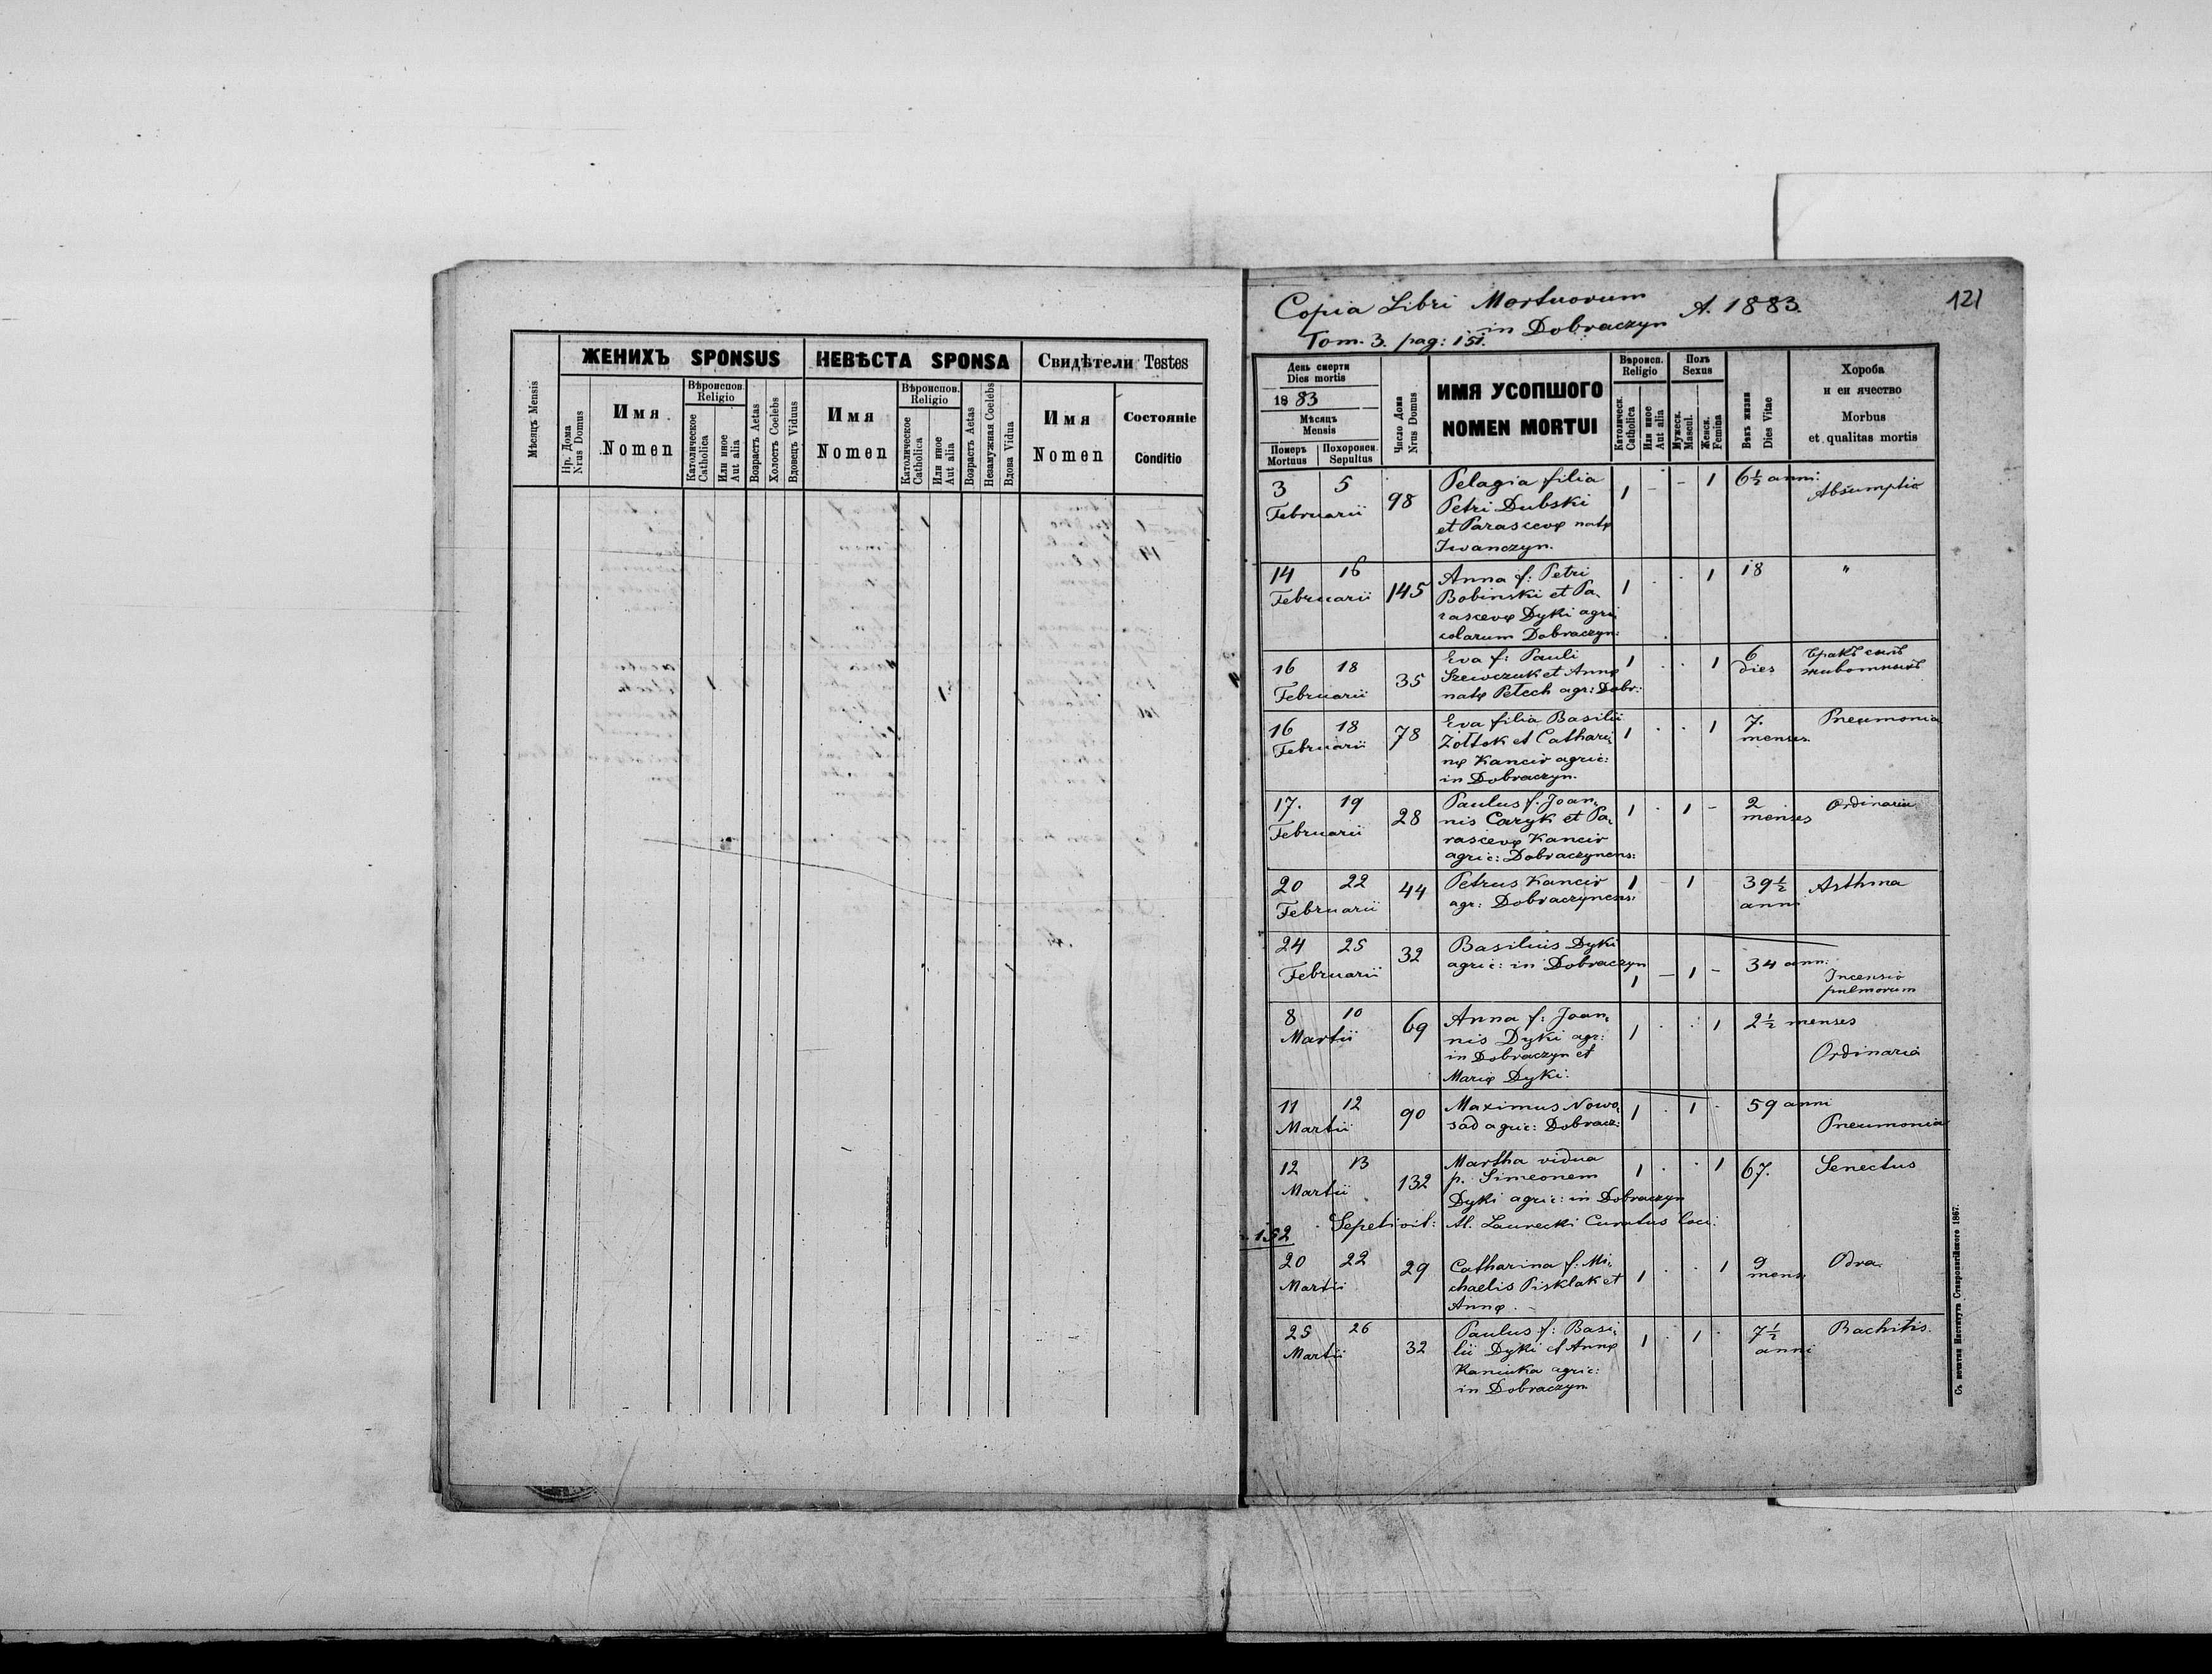 ЖЕНИХЪ SPONSUS
НЕВѢСТА SPONSA
Свидѣтели Testes
Мѣсяцъ Mensis
Нр. Дома
Nrus Domus
Имя
Nomen
Вѣроиспов.
Religio
Католическое
Catholica
Или иное
Aut alia
Возрастъ Aetas
Холостъ Coelebs
Вдовецъ Viduus
Имя
Nomen
Вѣроиспов.
Religio
Католическое
Catholica
Или иное
Aut alia
Возрастъ Aetas
Незамужная Coelebs
Вдова Vidua
Имя
Nomen
Состояніе
Conditio
Copia Libri Mortuorum A. 1883.
in Dobraczyn
Tom. 3. pag: 151.
121
День смерти
Dies mortis
1883
Мѣсяцъ
Mensis
Померъ
Mortuus
Похоронен.
Sepultus
Число Дома
Nrus Domus
ИМЯ УСОПШОГО
NOMEN MORTUI
Вѣроисп.
Religio
Католическ.
Catholica
Или иное
Aut alia
Полъ
Sexus
Мужеск.
Mascul.
Женск.
Femina
Вѣкъ жизни
Dies Vitae
Хороба
и еи ячество
Morbus
et qualitas mortis
3 5 98 Pelagia filia 1 - - 1 6½ anni: Absumptio
Februarii Petri Dubski
et Parascevę natę
Iwanczyn.
14 16 145 Anna f: Petri 1 . . 1 18 "
Februarii Bobinski et Pa-
rascevę Dyki agri
colarum Dobraczyn:
16 18 35 Eva f: Pauli 1 . . 1 6 dies
Februarii Szewczuk et Annę
natę Petech agr: Dobr:
16 18 78 Eva filia Basilii 1 . . 1 7. menses Pneumonia
Februarii Żołtok et Cathari-
nę Kancir agric:
in Dobraczyn.
17. 19 28 Paulus f. Joan- 1 . 1 - 2 menses Ordinaria
Februarii nis Caryk et Pa-
rascevę Kancir
agric: Dobraczynens:
20 22 44 Petrus Kancir 1 - 1 39½ anni Asthma
Februarii agr: Dobraczynens:
24 25 32 Basilius Dyki 1 - 1 - 34 ann: Incensio
Februarii agric: in Dobraczyn pulmorum
8 10 69 Anna f: Joan- 1 . . 1 2½ menses
Martii nis Dyki agr: Ordinaria
in Dobraczyn et
Marię Dyki.
11 12 90 Maximus Nowo- 1 . 1 . 59 anni
Martii sad agric: Dobracz: Pneumonia
12 13 132 Martha vidua 1 . . 1 67. Senectus
Martii p. Simeonem
Dyki agric: in Dobraczyn
152 Sepelivit: Al. Laurecki Curatus Loci.
20 22 29 Catharina f: Mi- 1 . . 1 9 mens: Odra
Martii chaelis Pisklak et
Annę.
25 26 32 Paulus f: Basi- 1 . 1 . 7½ anni Rachitis.
Martii lii Dyki et Annę
Kaniuka agric:
in Dobraczyn
Съ печатни Института Ставропигійского 1867.